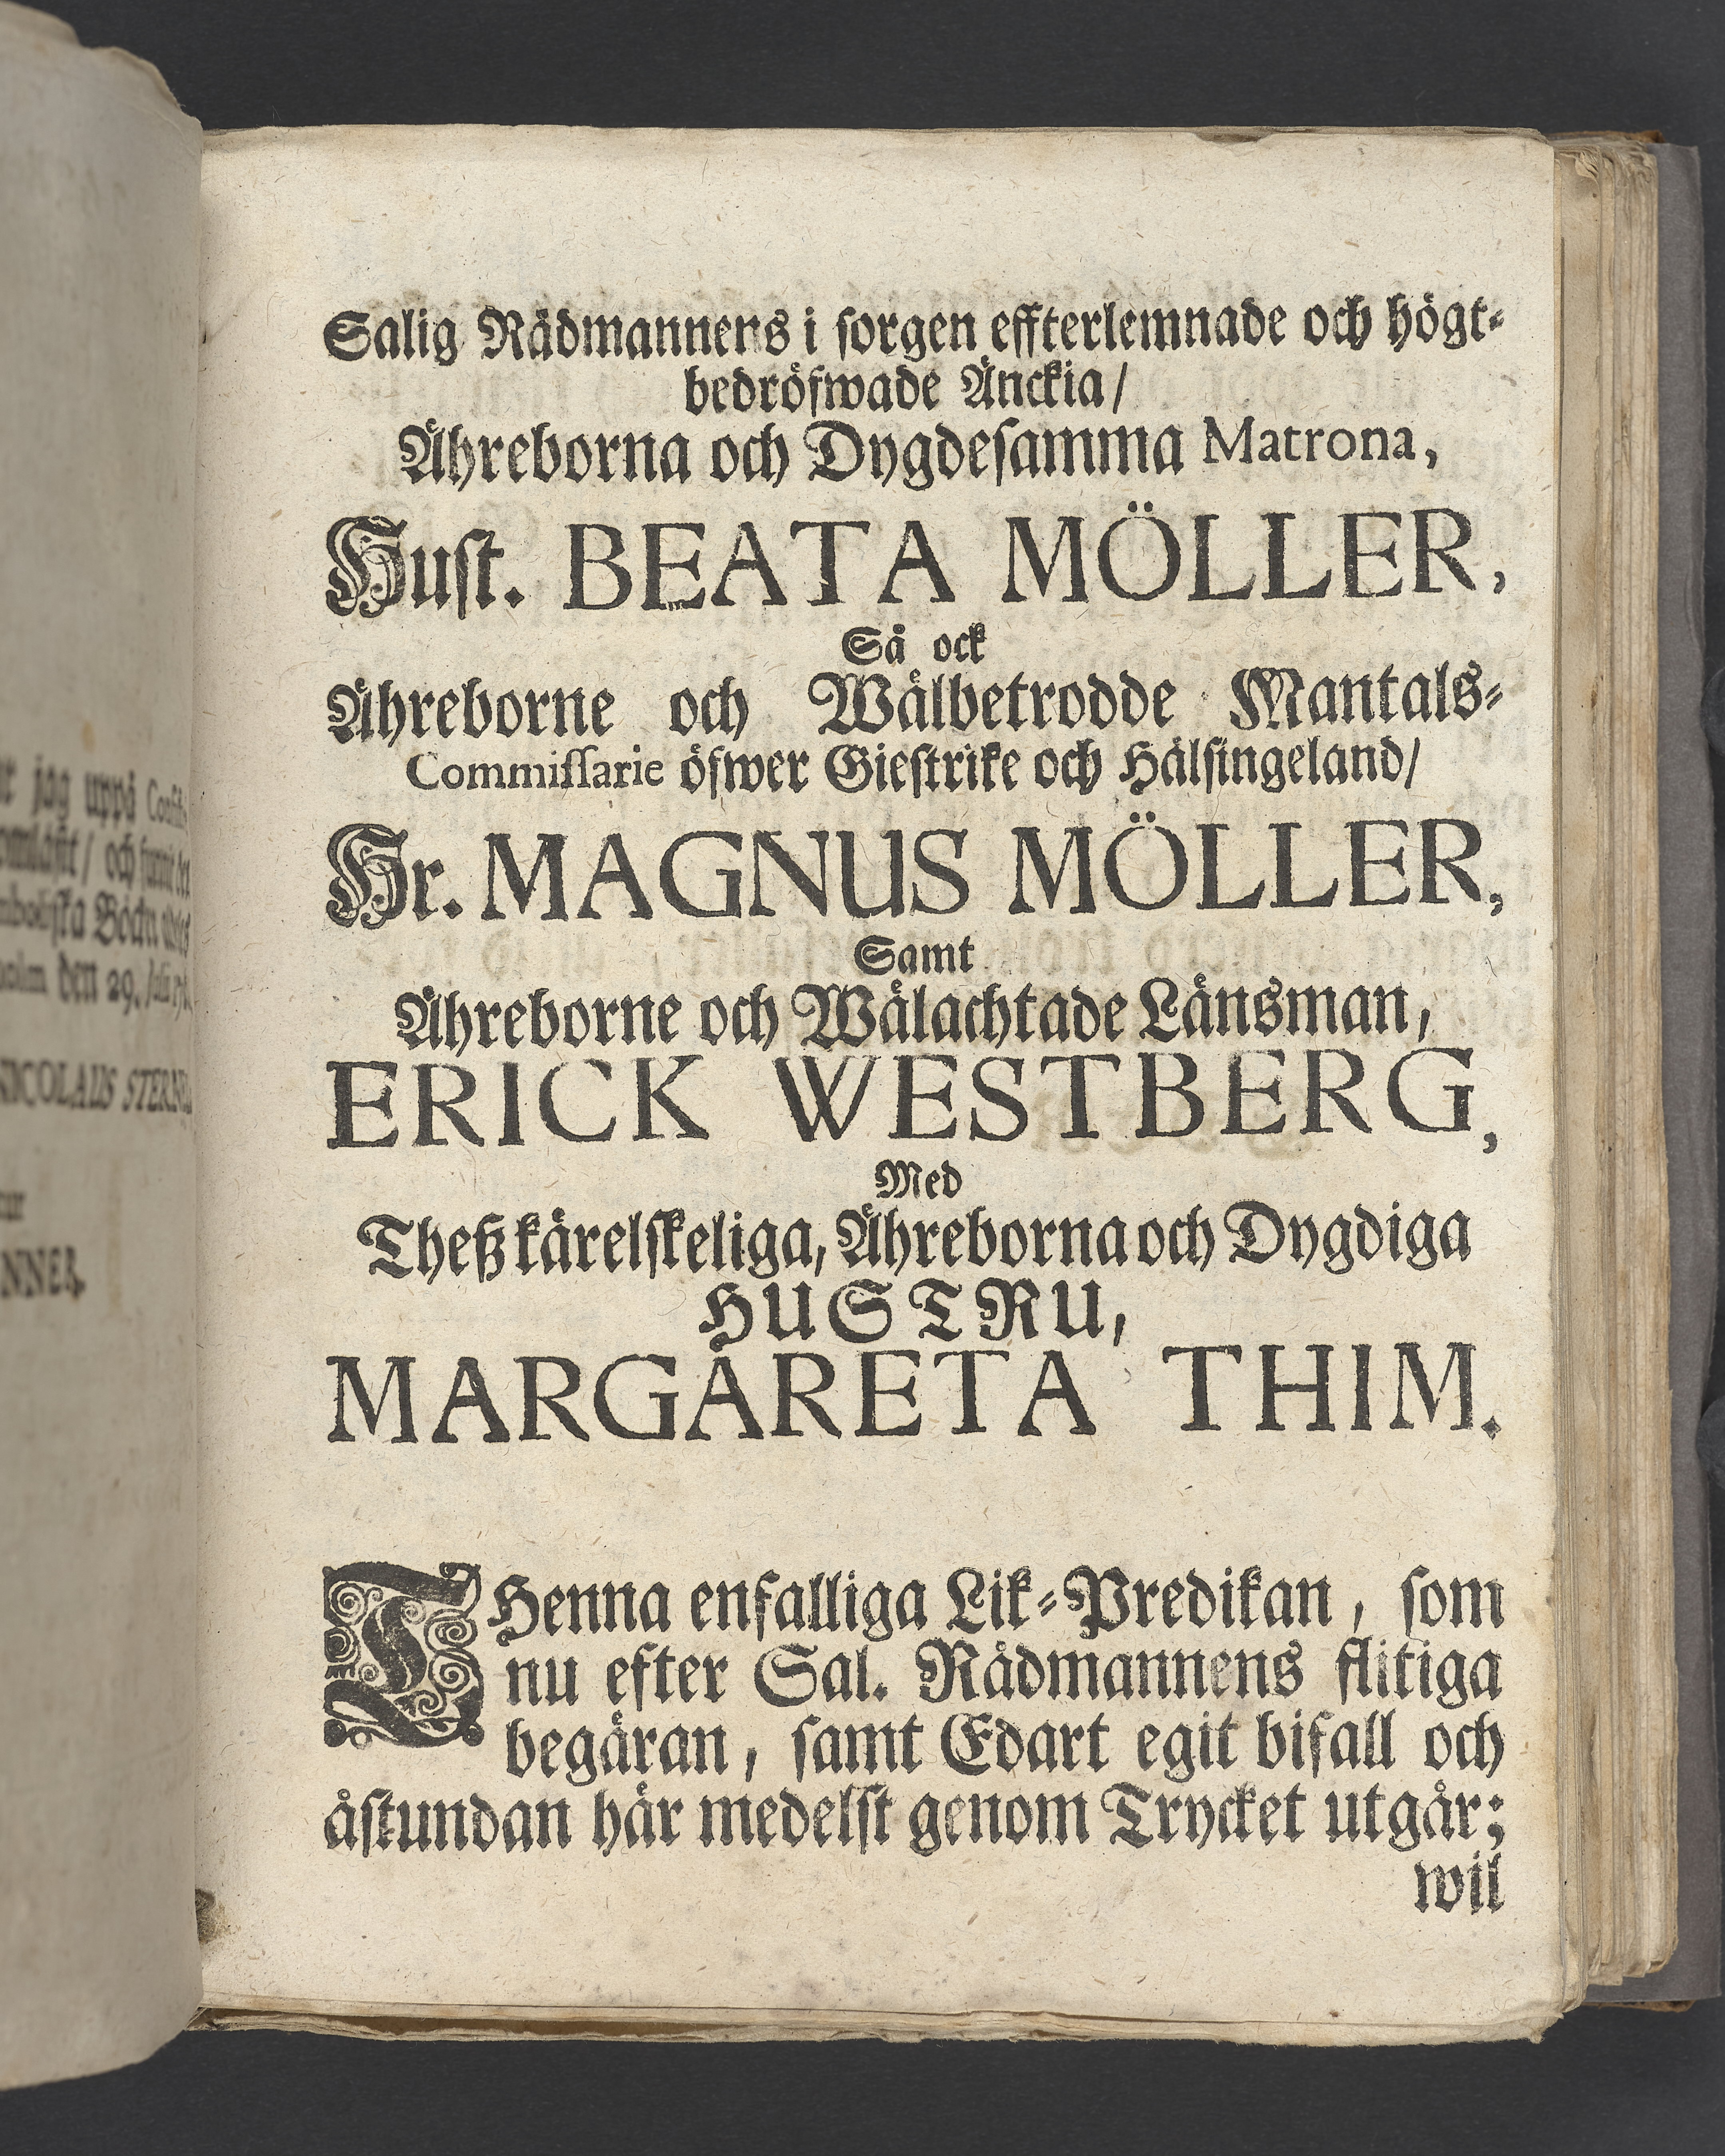 r jag uppå
och
Böckn
den 29.
NICOLAUS
NNER.
Salig Rådmannens i sorgen effterlemnade och högt-
bedröfwade Änckia/
Ähreborna och Dygdesamma Matrona,
Hust. BEATA MÖLLER,
Så ock
Ähreborne och Wälbetrodde Mantals-
Commissarie öfwer Giestrike och Hälsingeland/
Hr. MAGNUS MÖLLER,
Samt
Ähreborne och Wälachtade Länsman,
ERICK WESTBERG,
Med
Theß kärelskeliga, Ähreborna och Dygdiga
HUSTRU,
MARGARETA THIM.
THenna enfalliga Lik-Predikan, som
nu efter Sal. Rådmannens flitiga
begäran, samt Edart egit bifall och
åstundan här medelst genom Trycket utgår;
wil